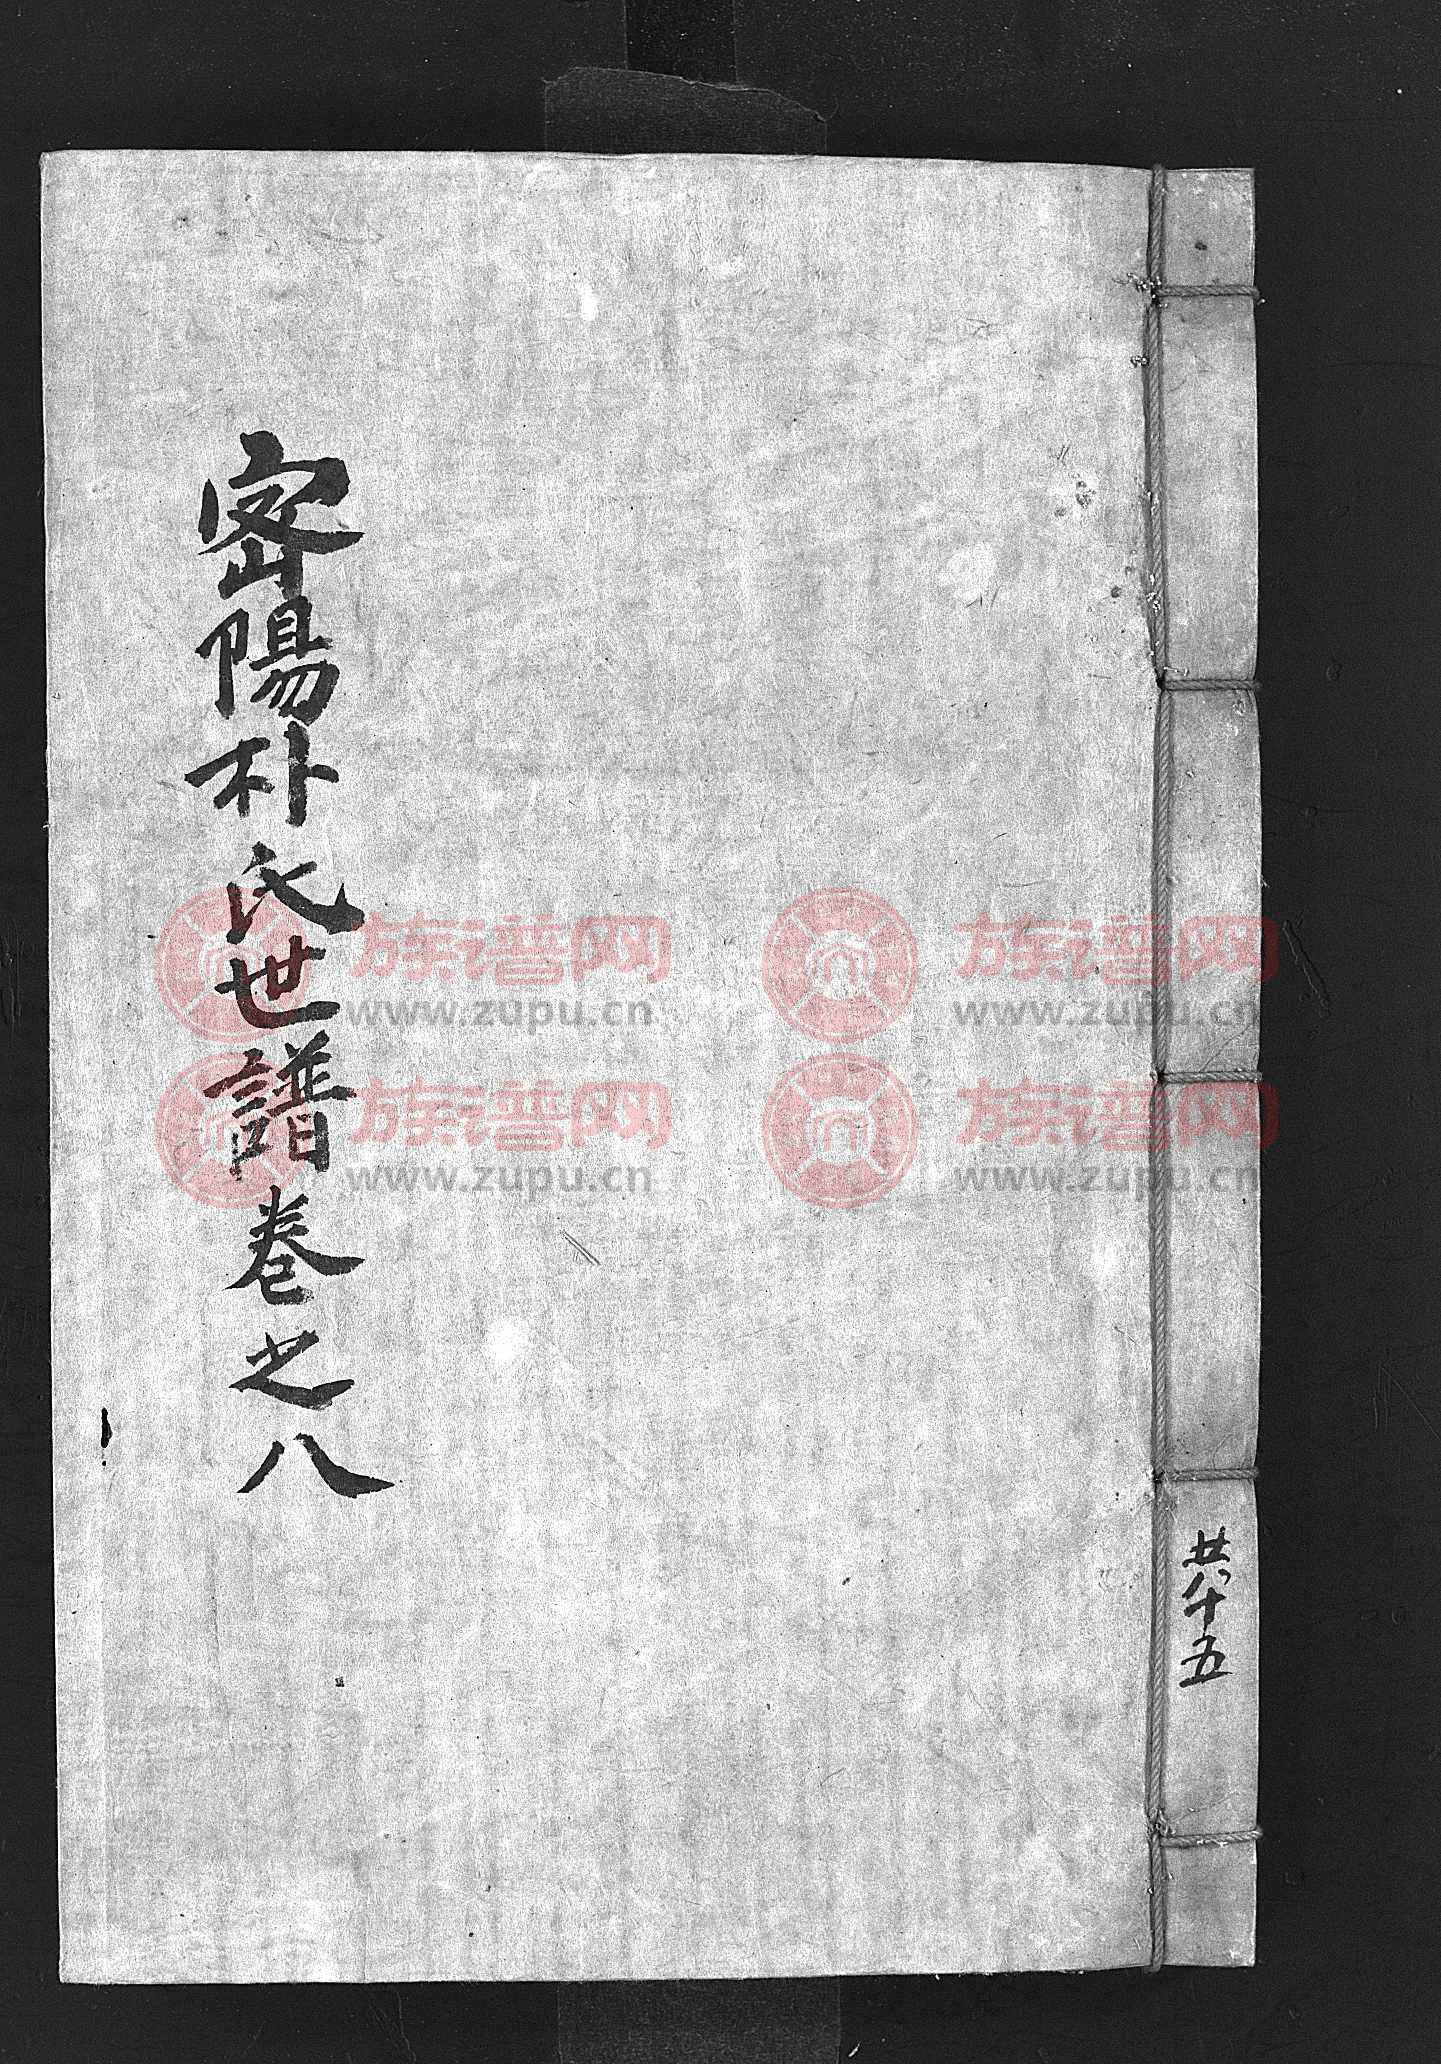 密陽朴氏世譜卷之八
共十五
族谱网
www.zupu.cn
族谱网
www.zupu.cn
族谱网
www.zupu.cn
族谱网
www.zupu.cn